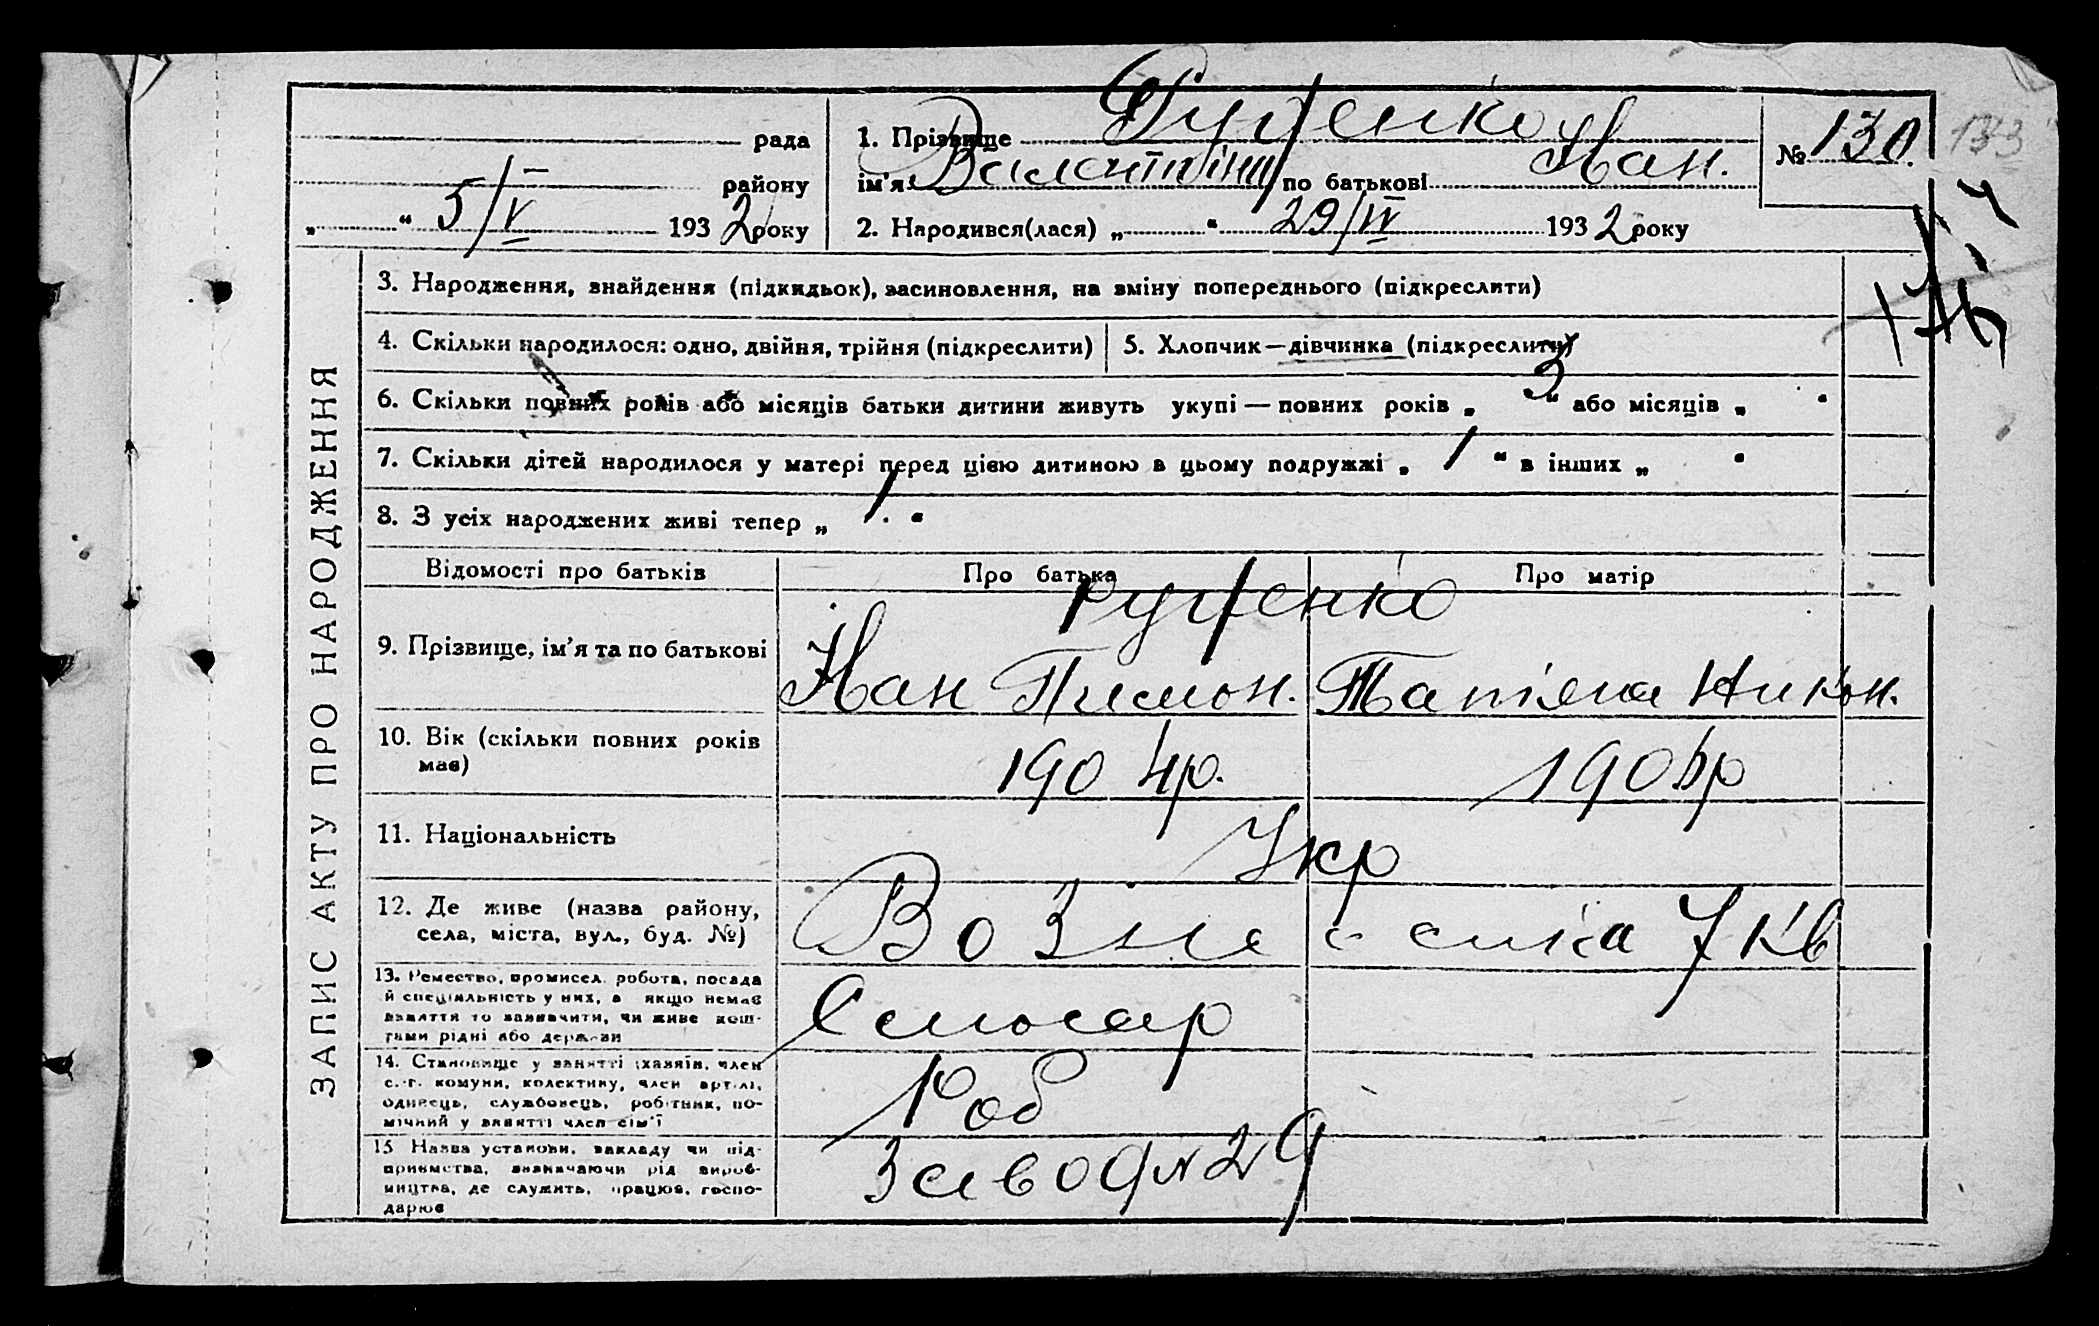 рада
району
„ “ 5/V 1932 року
1. Прізвище Руденко
ім'я Валентина по батькові Иван.
2. Народився(лася) „ “ 29/IV 1932 року
№ 130
133
ЗАПИС АКТУ ПРО НАРОДЖЕННЯ
3. Народження, знайдення (підкидьок), засиновлення, на зміну попереднього (підкреслити)
4. Скільки народилося: одно, двійня, трійня (підкреслити)
5. Хлопчик — дівчинка (підкреслити)
6. Скільки повних років або місяців батьки дитини живуть укупі — повних років „ 3 “ або місяців „ “
7. Скільки дітей народилося у матері перед цією дитиною в цьому подружжі „ 1 “ в інших „ “
8. З усіх народжених живі тепер „ 1 “
Відомості про батьків
Про батька
Про матір
9. Прізвище, ім'я та по батькові
Руденко
Иван Пимон.
Татіяна Никон.
10. Вік (скільки повних років
має)
1904р.
190 р
11. Національність
Укр
12. Де живе (назва району,
села, міста, вул., буд. №)
Вознесенка 7 кв
13. Ремество, промисел, робота, посада
й спеціяльність у них, а якщо немає
заняття то зазначити, чи живе кош-
тами рідні або держави
Слюсар
14. Становище у занятті (хазяїн, член
с.-г. комуни, колективу, член артілі,
одинець, службовець, робітник, по-
мічний у занятті член сім'ї
Роб
15 Назва установи, закладу чи під-
приємства, зазначаючи рід вироб-
ництва, де служить, працює, госпо-
дарює
Завод №29